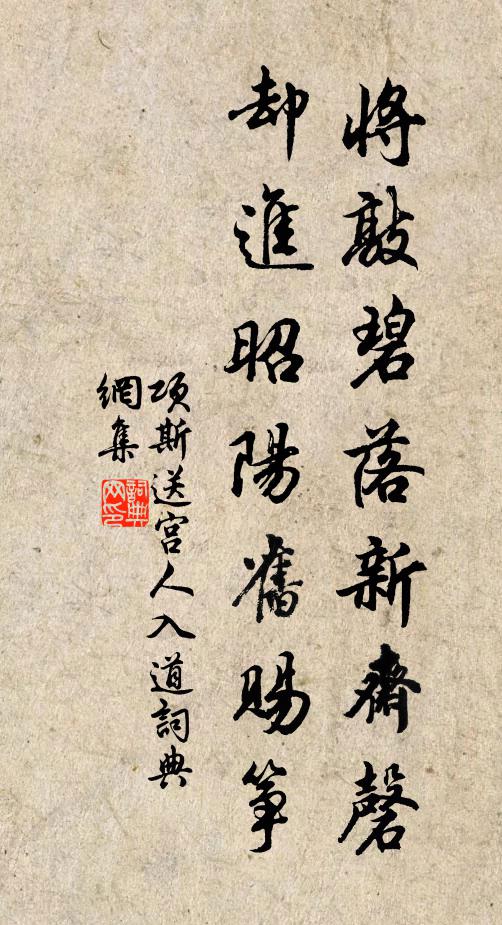 將敲碧落新齋磬
却進昭陽舊賜箏
項斯送宮人入道詞典
網集
詞典網印